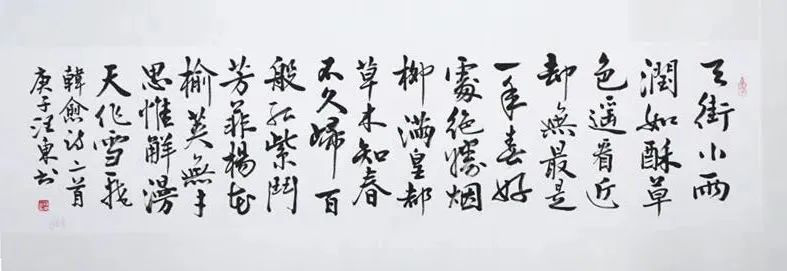 天街小雨
潤如酥草
色遥看近
却無最是
一年春好
處絶勝烟
柳滿皇都
草木知春
不久歸百
般红紫鬥
芳菲楊花
榆莢無才
思惟解漫
天作雪飛
韓愈诗二首
庚子汪東书